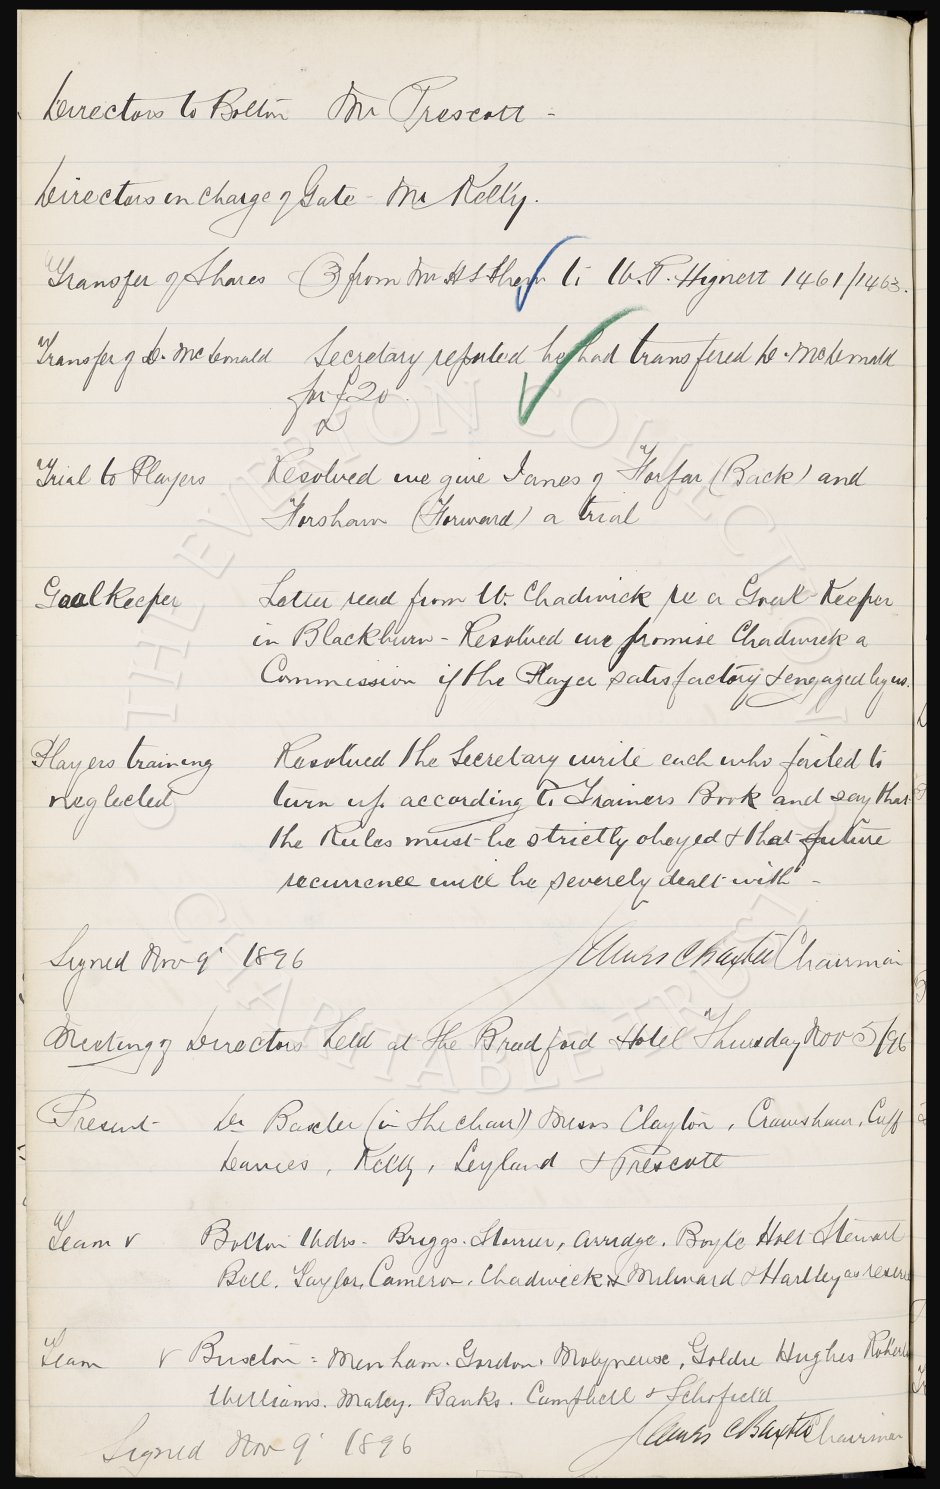 Directors to Bolton Mr Prescott -
Directors in charge of Gate - Mr Kelly.
Transfer of Shares (3) from Mr H S to W. P. Hignett 1461/1463.
Transfer of D. McDonald Secretary reported he had transfered D. McDonald
for £20.
Trial to Players Resolved we give Innes of Forfar (Back) and
Horsham (Forward) a trial
Goalkeeper Letter read from W. Chadwick re a Goal Keeper
in Blackburn - Resolved we promise Chadwick a
Commission if the Player satisfactory & engaged by us.
Players training Resolved the Secretary write each who failed to
neglected turn up according to Trainers Book and say that
the Rules must be strictly obeyed & that future
recurrence will be severely dealt with -
Signed Nov 9 1896 James C Baxter Chairman
Meeting of Directors held at The Bradford Hotel Thursday Nov 5/96
Present - Dr Baxter (in the chair) Messrs Clayton, Crawshaw, Cuff
Davies, Kelly, Leyland & Prescott
Team v Bolton Wdrs - Briggs. Storrier, Arridge. Boyle Holt Stewart
Bell. Taylor, Cameron. Chadwick & Milward & Hartley as reserve
Team v Buxton = Menham. Gordon. Molyneux, Goldie Hughes
Williams. Maley. Banks. Campbell & Schofield
Signed Nov 9 1896 James C Baxter Chairman
THE EVERTON COLLECTION
CHARITABLE TRUST